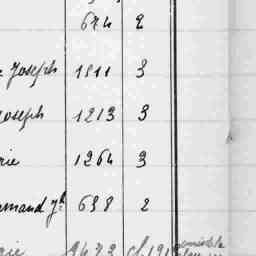 674 2
Joseph 1811 3
Joseph 1213 3
rie 1264 3
mand Jh 698 2
rie 9473